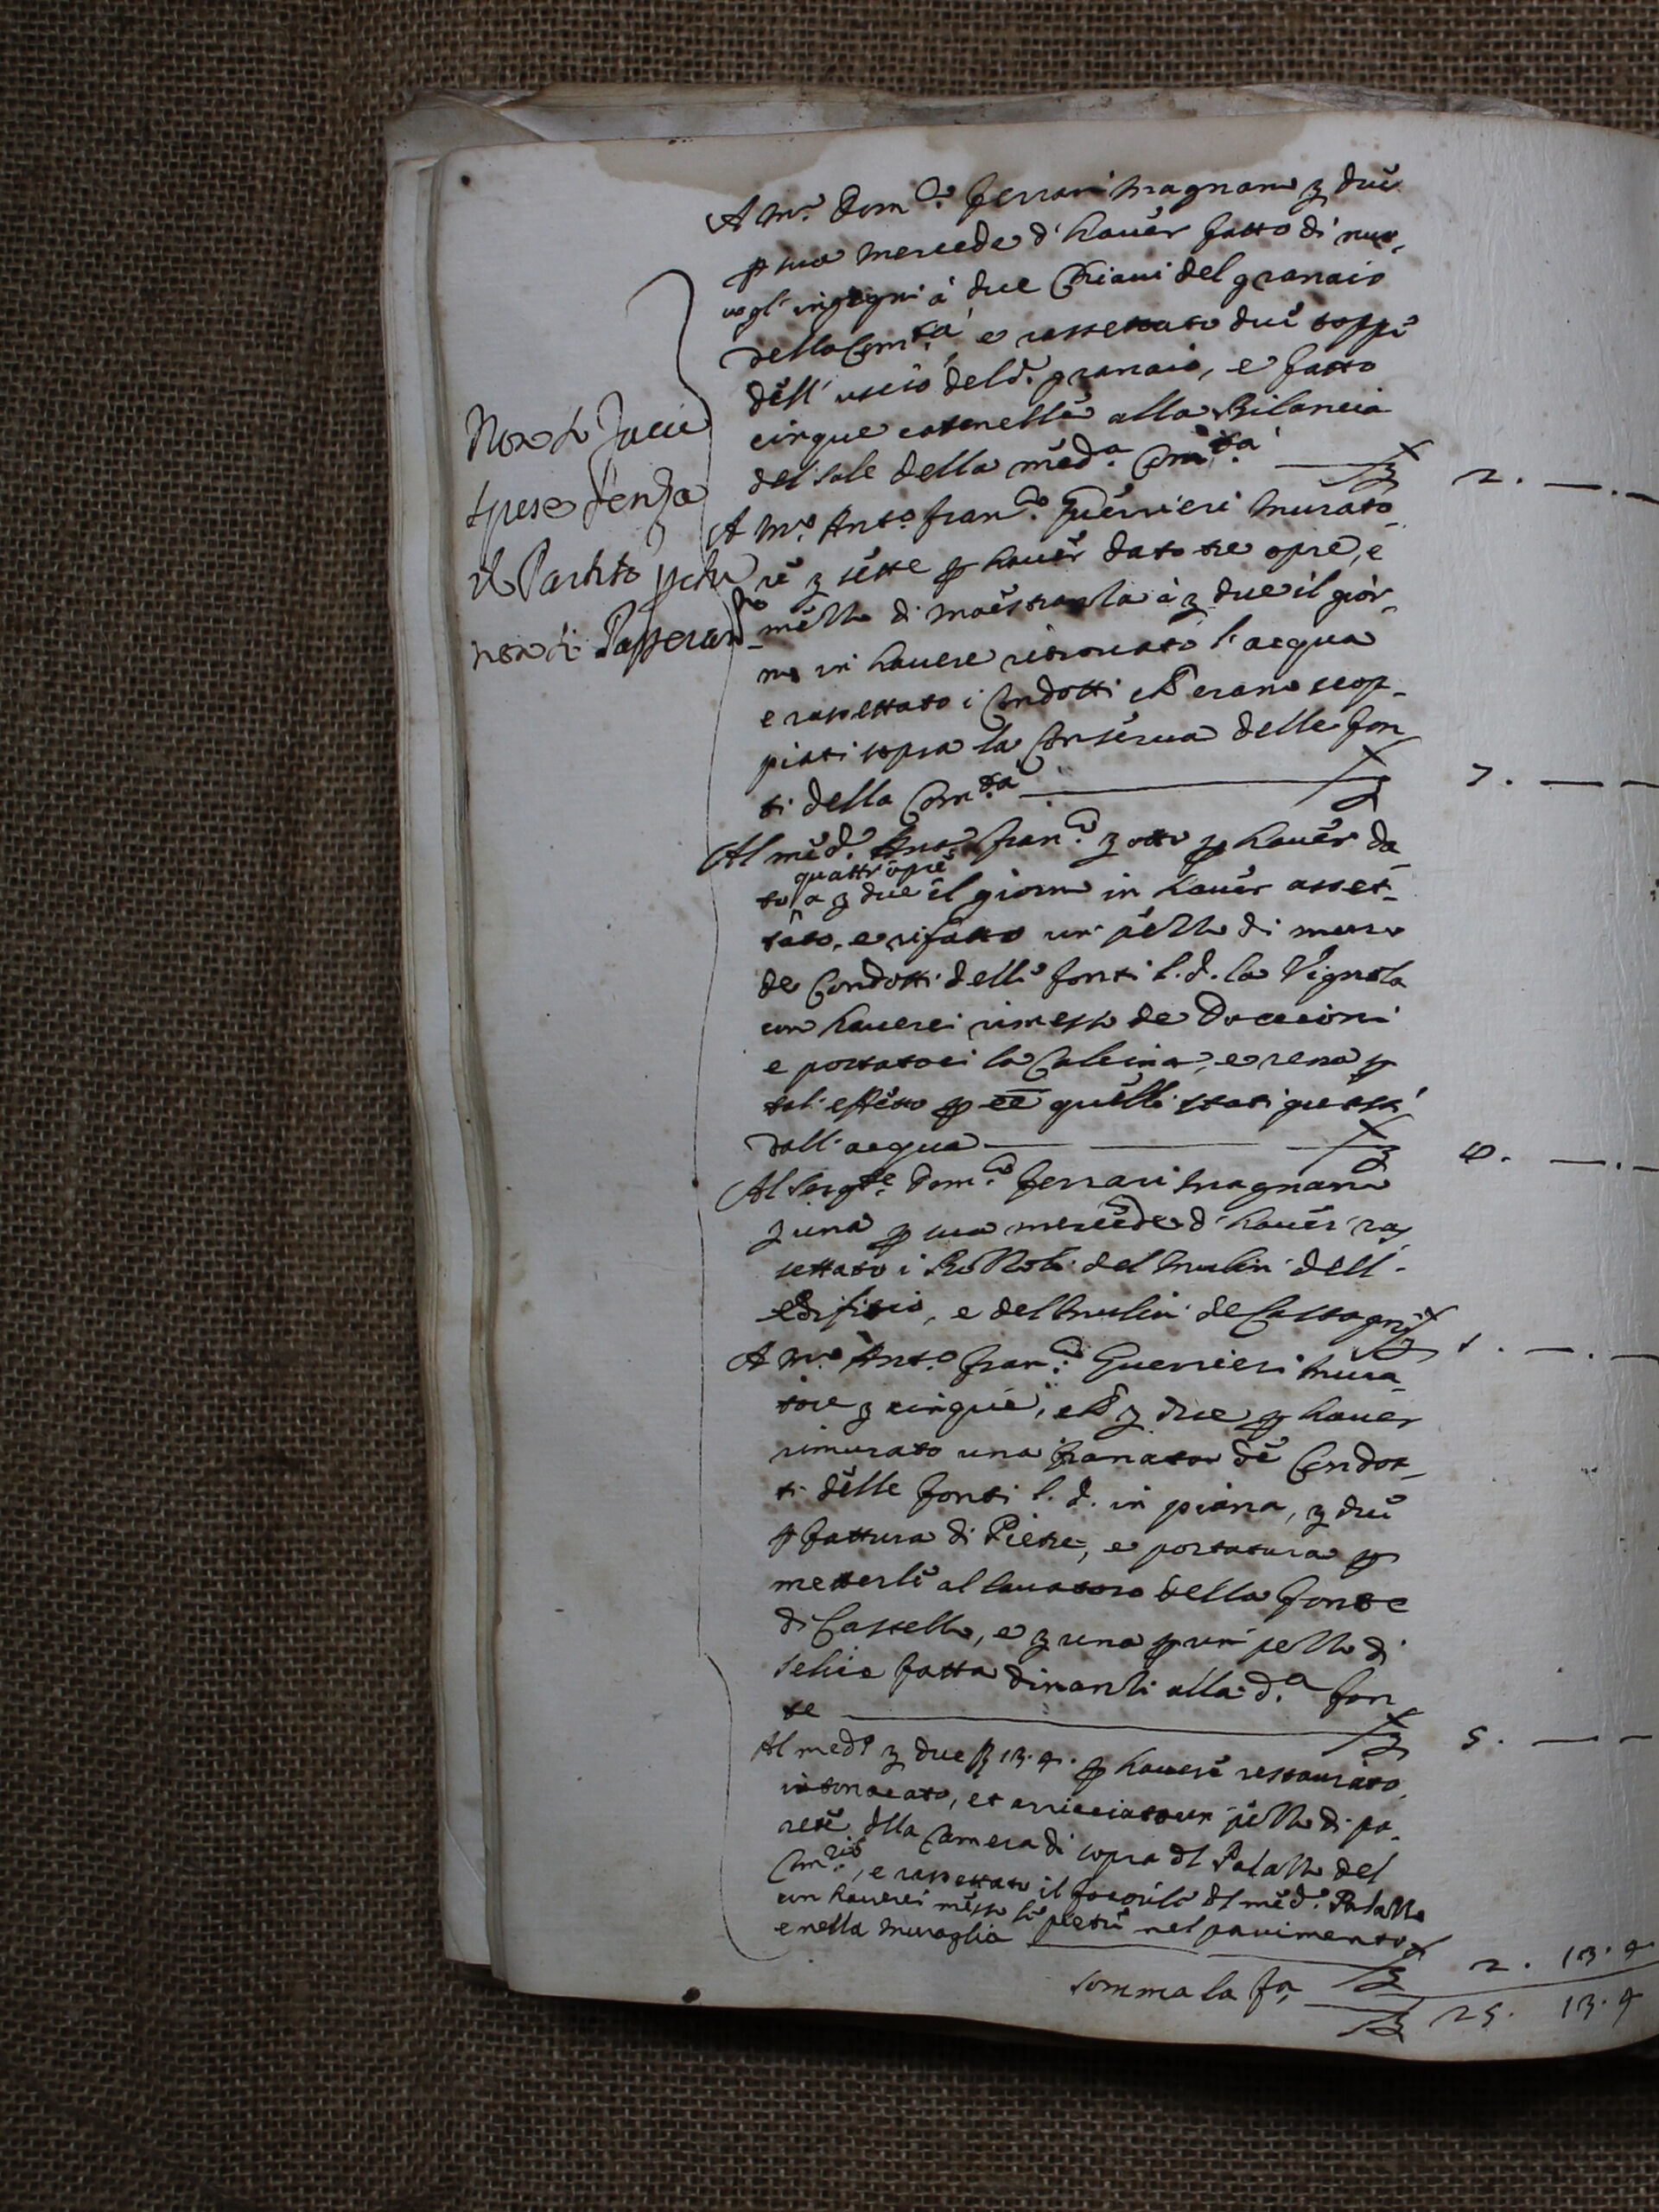 A m.º Dom.co Ferrari Magnano £ due
p sua mercede d'hauer fatto di nuo-
uo gl'ingegni à due Chiaui del granaio
della Com.tà e rassettato due toppe
dell'uscio del d.º granaio, e fatto
cinque catenelle alla Bilancia
del sale della med.a Com.tà — £ 2. —. —
A m.º Ant.º Fran.co Guerrieri Murato-
re £ sette p hauer dato tre opre, e
mezzo di maestranza à £ due il gior-
no in hauere ritrouato l'acqua
e rassettato i Condotti ch'erano scop-
piati sopra la Conserua delle fon
ti della Com.tà — £ 7. — —
Al med.º Ant.º Fran.co £ otto p hauer da-
quattr'opre
to a £ due il giorno in hauer asset-
tato, e rifatto un pezzo di muro
de Condotti delle fonti l. d. la Vignola
con hauerci rimesso de Doccioni
e portatoci la Calcina, e rena p
tal effetto p ee quelli stati guasti
dall'acqua — — £ 8. —. —
Al Serg.te Dom.co Ferrari Magnano
£ una p sua mercede d'hauer ras
settato i Bozzoli del Mulin dell'
edifizio, e del Mulin de Castagni £ 1. —. —
A m.º Ant.º Fran.co Guerrieri Mura-
tore £ cinque, ch'è £ due p hauer
rimurato una di Condot-
ti delle fonti l. d. in piana, £ due
p fattura di Pietre, e portatura p
metterle al lauatoro della fonte
di Castello, e £ una p un pezzo di
selice fatta dinanzi alla d.a fon
te — £ 5. — —
Al med.º £ due ß 13.4. p hauere restaurato,
intonacato, et arricciato un pezzo di pa-
rete dlla Camera di sopra dl Palazzo del
Com.rio, e rassettato il focolare dl med.º Palazzo
con hauerci messo le pietre nel pauimento,
e nella muraglia — £ 2. 13.4
somma la fa — £ 25. 13.4
Non si faccie
spese senza
il Partito
non si Passeran
no